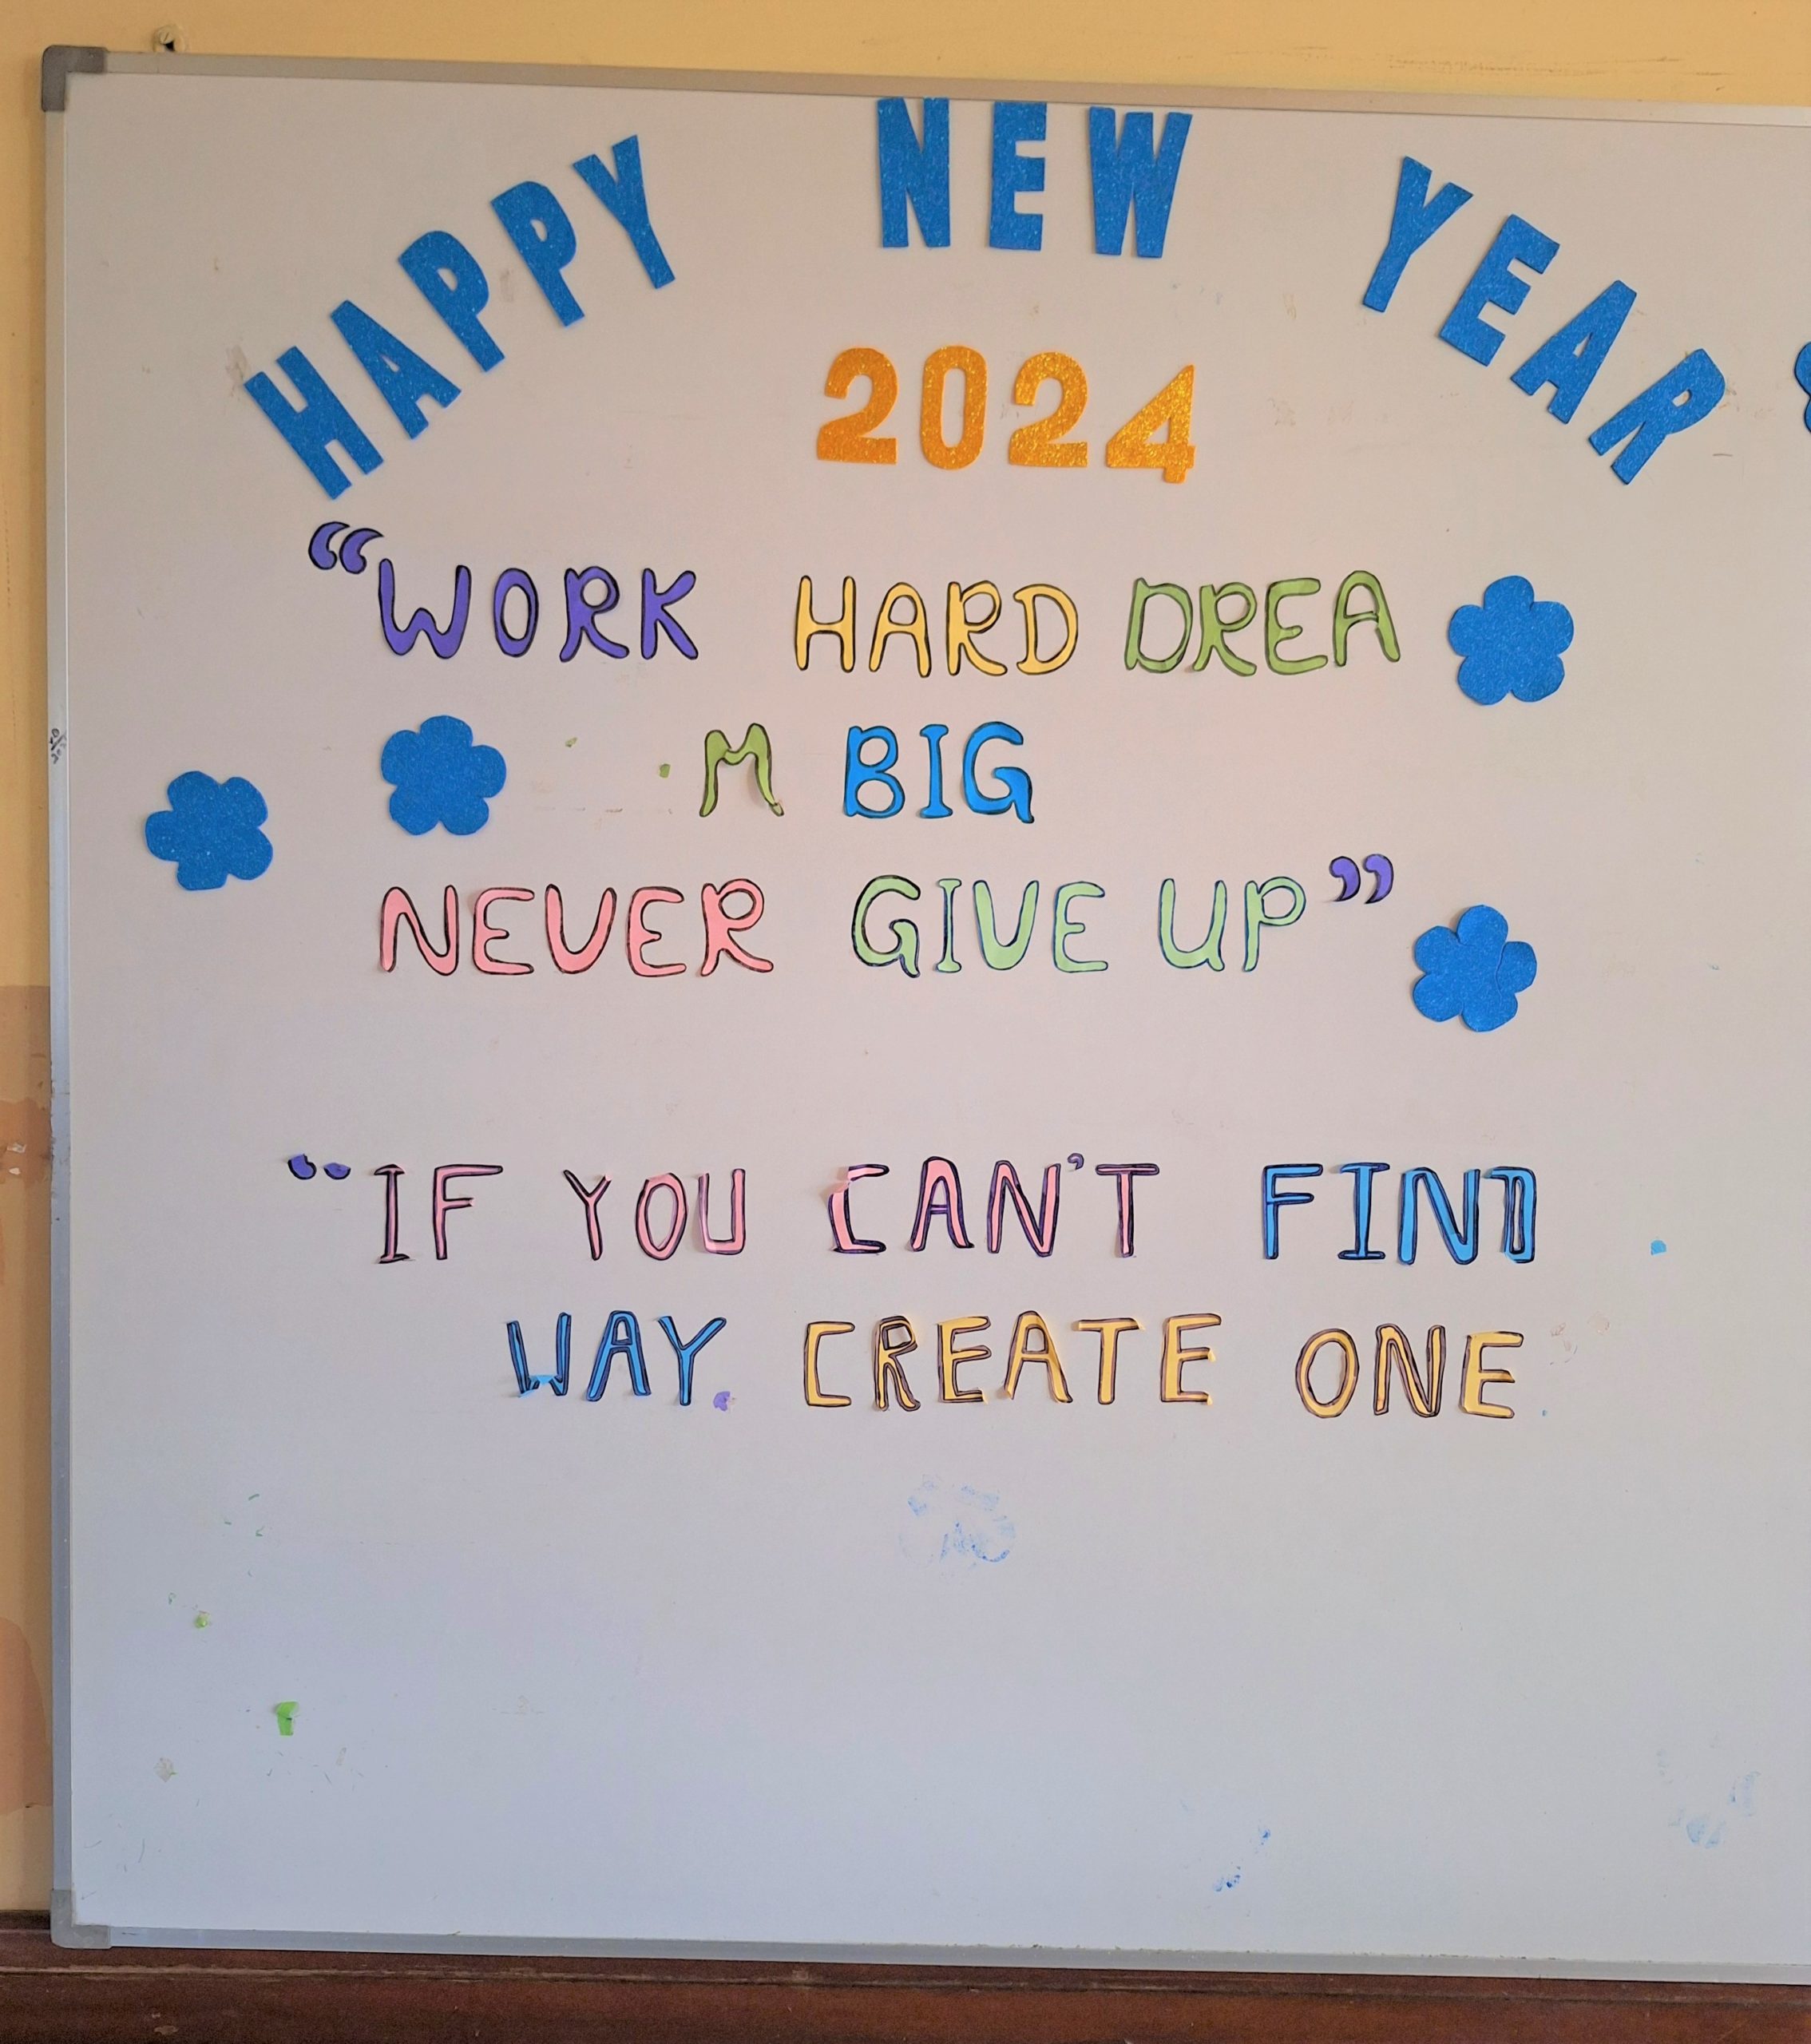 HAPPY NEW YEAR
2024
“WORK HARD DREA
M BIG
NEVER GIVE UP”
“IF YOU CAN'T FIND
WAY. CREATE ONE